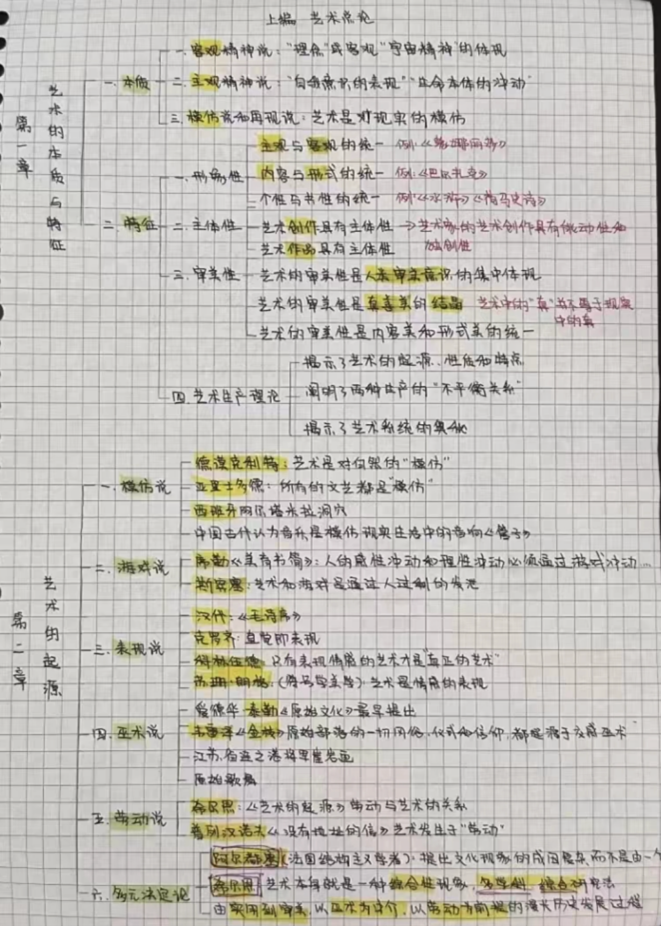 上编 艺术总论
第一章 艺术的本质与特征
一.本质
一.客观精神说："理念"或客观"宇宙精神"的体现
二.主观精神说："自我意识的表现""生命本体的冲动"
三.模仿说和再现说：艺术是对现实的模仿
二.特征
一.形象性
主观与客观的统一 例：《蒙娜丽莎》
内容与形式的统一 例：《巴尔扎克》
个性与共性的统一 例：《水浒》《荷马史诗》
二.主体性
艺术创作具有主体性 → 艺术家的艺术创作具有能动性和
创造性
艺术作品具有主体性
三.审美性
艺术的审美性是人类审美意识的集中体现
艺术的审美性是真善美的结晶 艺术中的"真"并不等于现实
中的真
艺术的审美性是内容美和形式美的统一
四.艺术生产理论
揭示了艺术的起源、性质和特点
阐明了两种生产的"不平衡关系"
揭示了艺术系统的奥秘
第二章 艺术的起源
一.模仿说
德谟克利特：艺术是对自然的"模仿"
亚里士多德：所有的文艺都是"模仿"
西班牙阿尔塔米拉洞穴
中国古代认为音乐是模仿现实生活中的音响《管子》
二.游戏说
席勒《美育书简》：人的感性冲动和理性冲动必须通过游戏冲动…
斯宾塞：艺术和游戏是通过人过剩的发泄
三.表现说
汉代：《毛诗序》
克罗齐：直觉即表现
科林伍德：只有表现情感的艺术才是"真正的艺术"
苏珊·朗格：（符号学美学）艺术是情感的表现
四.巫术说
爱德华·泰勒《原始文化》最早提出
弗雷泽《金枝》原始部落的一切风俗，仪式和信仰，都起源于交感巫术
江苏省连云港将军崖岩画
原始歌舞
五.劳动说
希尔恩：《艺术的起源》劳动与艺术的关系
普列汉诺夫《没有地址的信》艺术发生于"劳动"
六.多元决定论
阿尔都塞（法国结构主义学者）：提出文化现象的成因复杂，而不是由一个
希尔恩 艺术本身就是一种综合性现象，多学科 综合研究法
由实用到审美，以巫术为中介，以劳动为前提的漫长历史发展过程